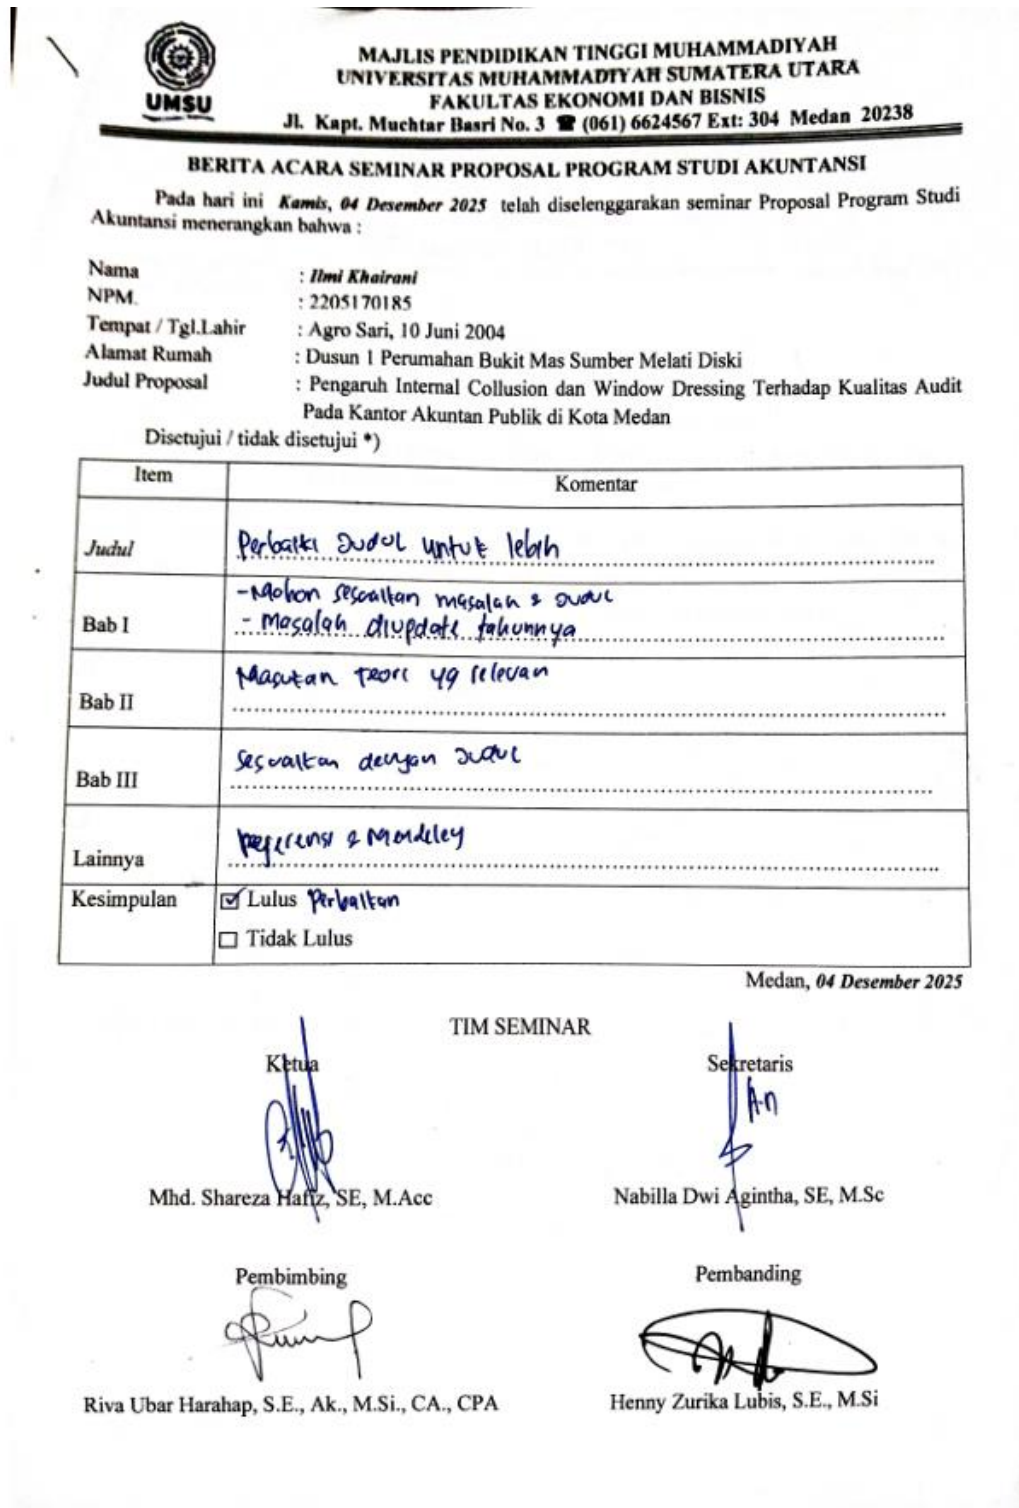 MAJLIS PENDIDIKAN TINGGI MUHAMMADIYAH
UNIVERSITAS MUHAMMADIYAH SUMATERA UTARA
FAKULTAS EKONOMI DAN BISNIS
Jl. Kapt. Muchtar Basri No. 3 ☎ (061) 6624567 Ext: 304 Medan 20238
UMSU
BERITA ACARA SEMINAR PROPOSAL PROGRAM STUDI AKUNTANSI
Pada hari ini Kamis, 04 Desember 2025 telah diselenggarakan seminar Proposal Program Studi
Akuntansi menerangkan bahwa :
Nama : Ilmi Khairani
NPM. : 2205170185
Tempat / Tgl.Lahir : Agro Sari, 10 Juni 2004
Alamat Rumah : Dusun 1 Perumahan Bukit Mas Sumber Melati Diski
Judul Proposal : Pengaruh Internal Collusion dan Window Dressing Terhadap Kualitas Audit
Pada Kantor Akuntan Publik di Kota Medan
Disetujui / tidak disetujui *)
Item Komentar
Judul Perbaiki Judul untuk lebih
Bab I - Mohon sesuaikan masalah & Judul
- Masalah diupdate tahunnya
Bab II Masukan teori yg relevan
Bab III Sesuaikan dengan Judul
Lainnya Referensi & Mendeley
Kesimpulan ☑ Lulus Perbaikan
☐ Tidak Lulus
Medan, 04 Desember 2025
TIM SEMINAR
Ketua Sekretaris
A.n
Mhd. Shareza Hafiz, SE, M.Acc Nabilla Dwi Agintha, SE, M.Sc
Pembimbing Pembanding
Riva Ubar Harahap, S.E., Ak., M.Si., CA., CPA Henny Zurika Lubis, S.E., M.Si